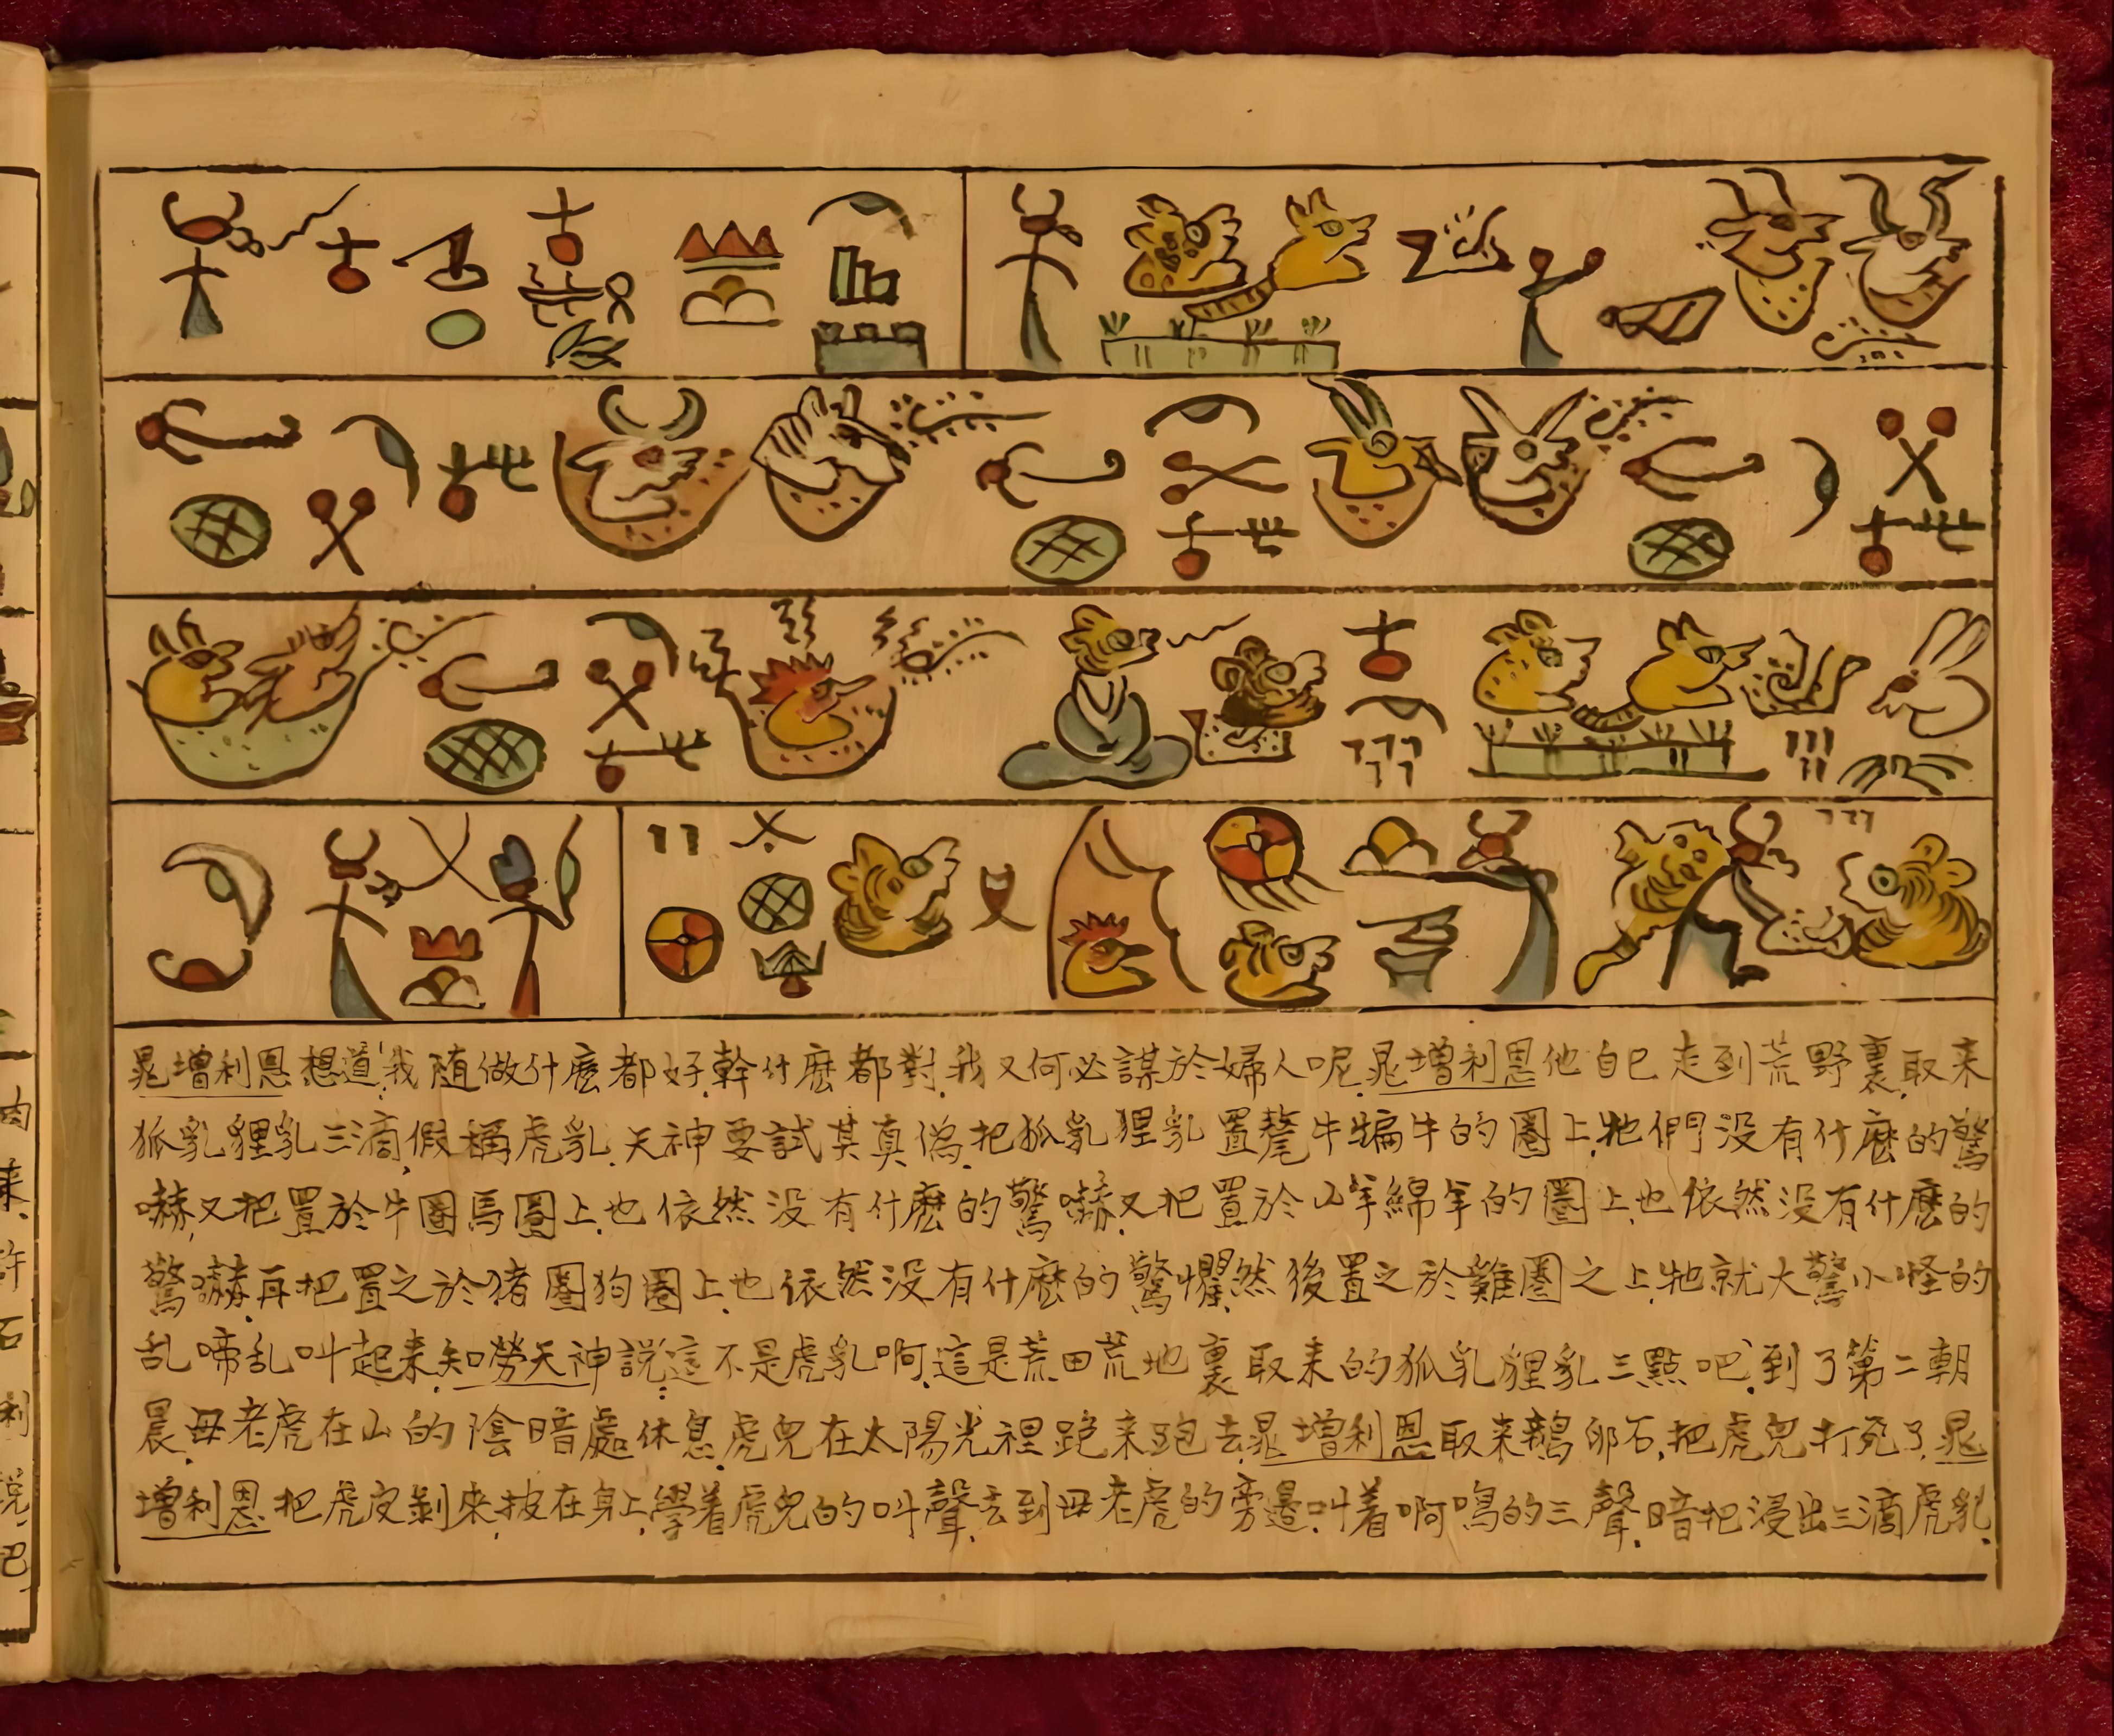 晁增利恩想道:我隨做什麽都好,幹什麽都對,我又何必謀於婦人呢,晁增利恩他自已走到荒野裏,取来
狐乳貍乳三滴,假稱虎乳,天神要試其真偽,把狐乳狸乳置犛牛犏牛的圈上,牠們没有什麽的驚
嚇,又把置於牛圈馬圈上,也依然没有什麽的驚嚇,又把置於山羊綿羊的圈上,也依然没有什麽的
驚嚇,再把置之於猪圈狗圈上,也依然没有什麽的驚懼,然後置之於雞圈之上,牠就大驚小怪的
乱啼乱叫起来,知勞天神説:這不是虎乳啊,這是荒田荒地裏取来的狐乳貍乳三點吧,到了第二朝
晨,母老虎在山的陰暗處休息,虎兒在太陽光裡跑来跑去,晁增利恩取来鵝卵石,把虎兒打死了,晁
增利恩把虎皮剝來,披在身上,學着虎兒的叫聲,去到母老虎的旁邊,叫着啊嗚的三聲,暗把浸出三滴虎乳,
肉
来,
許
石
利
説,
巴